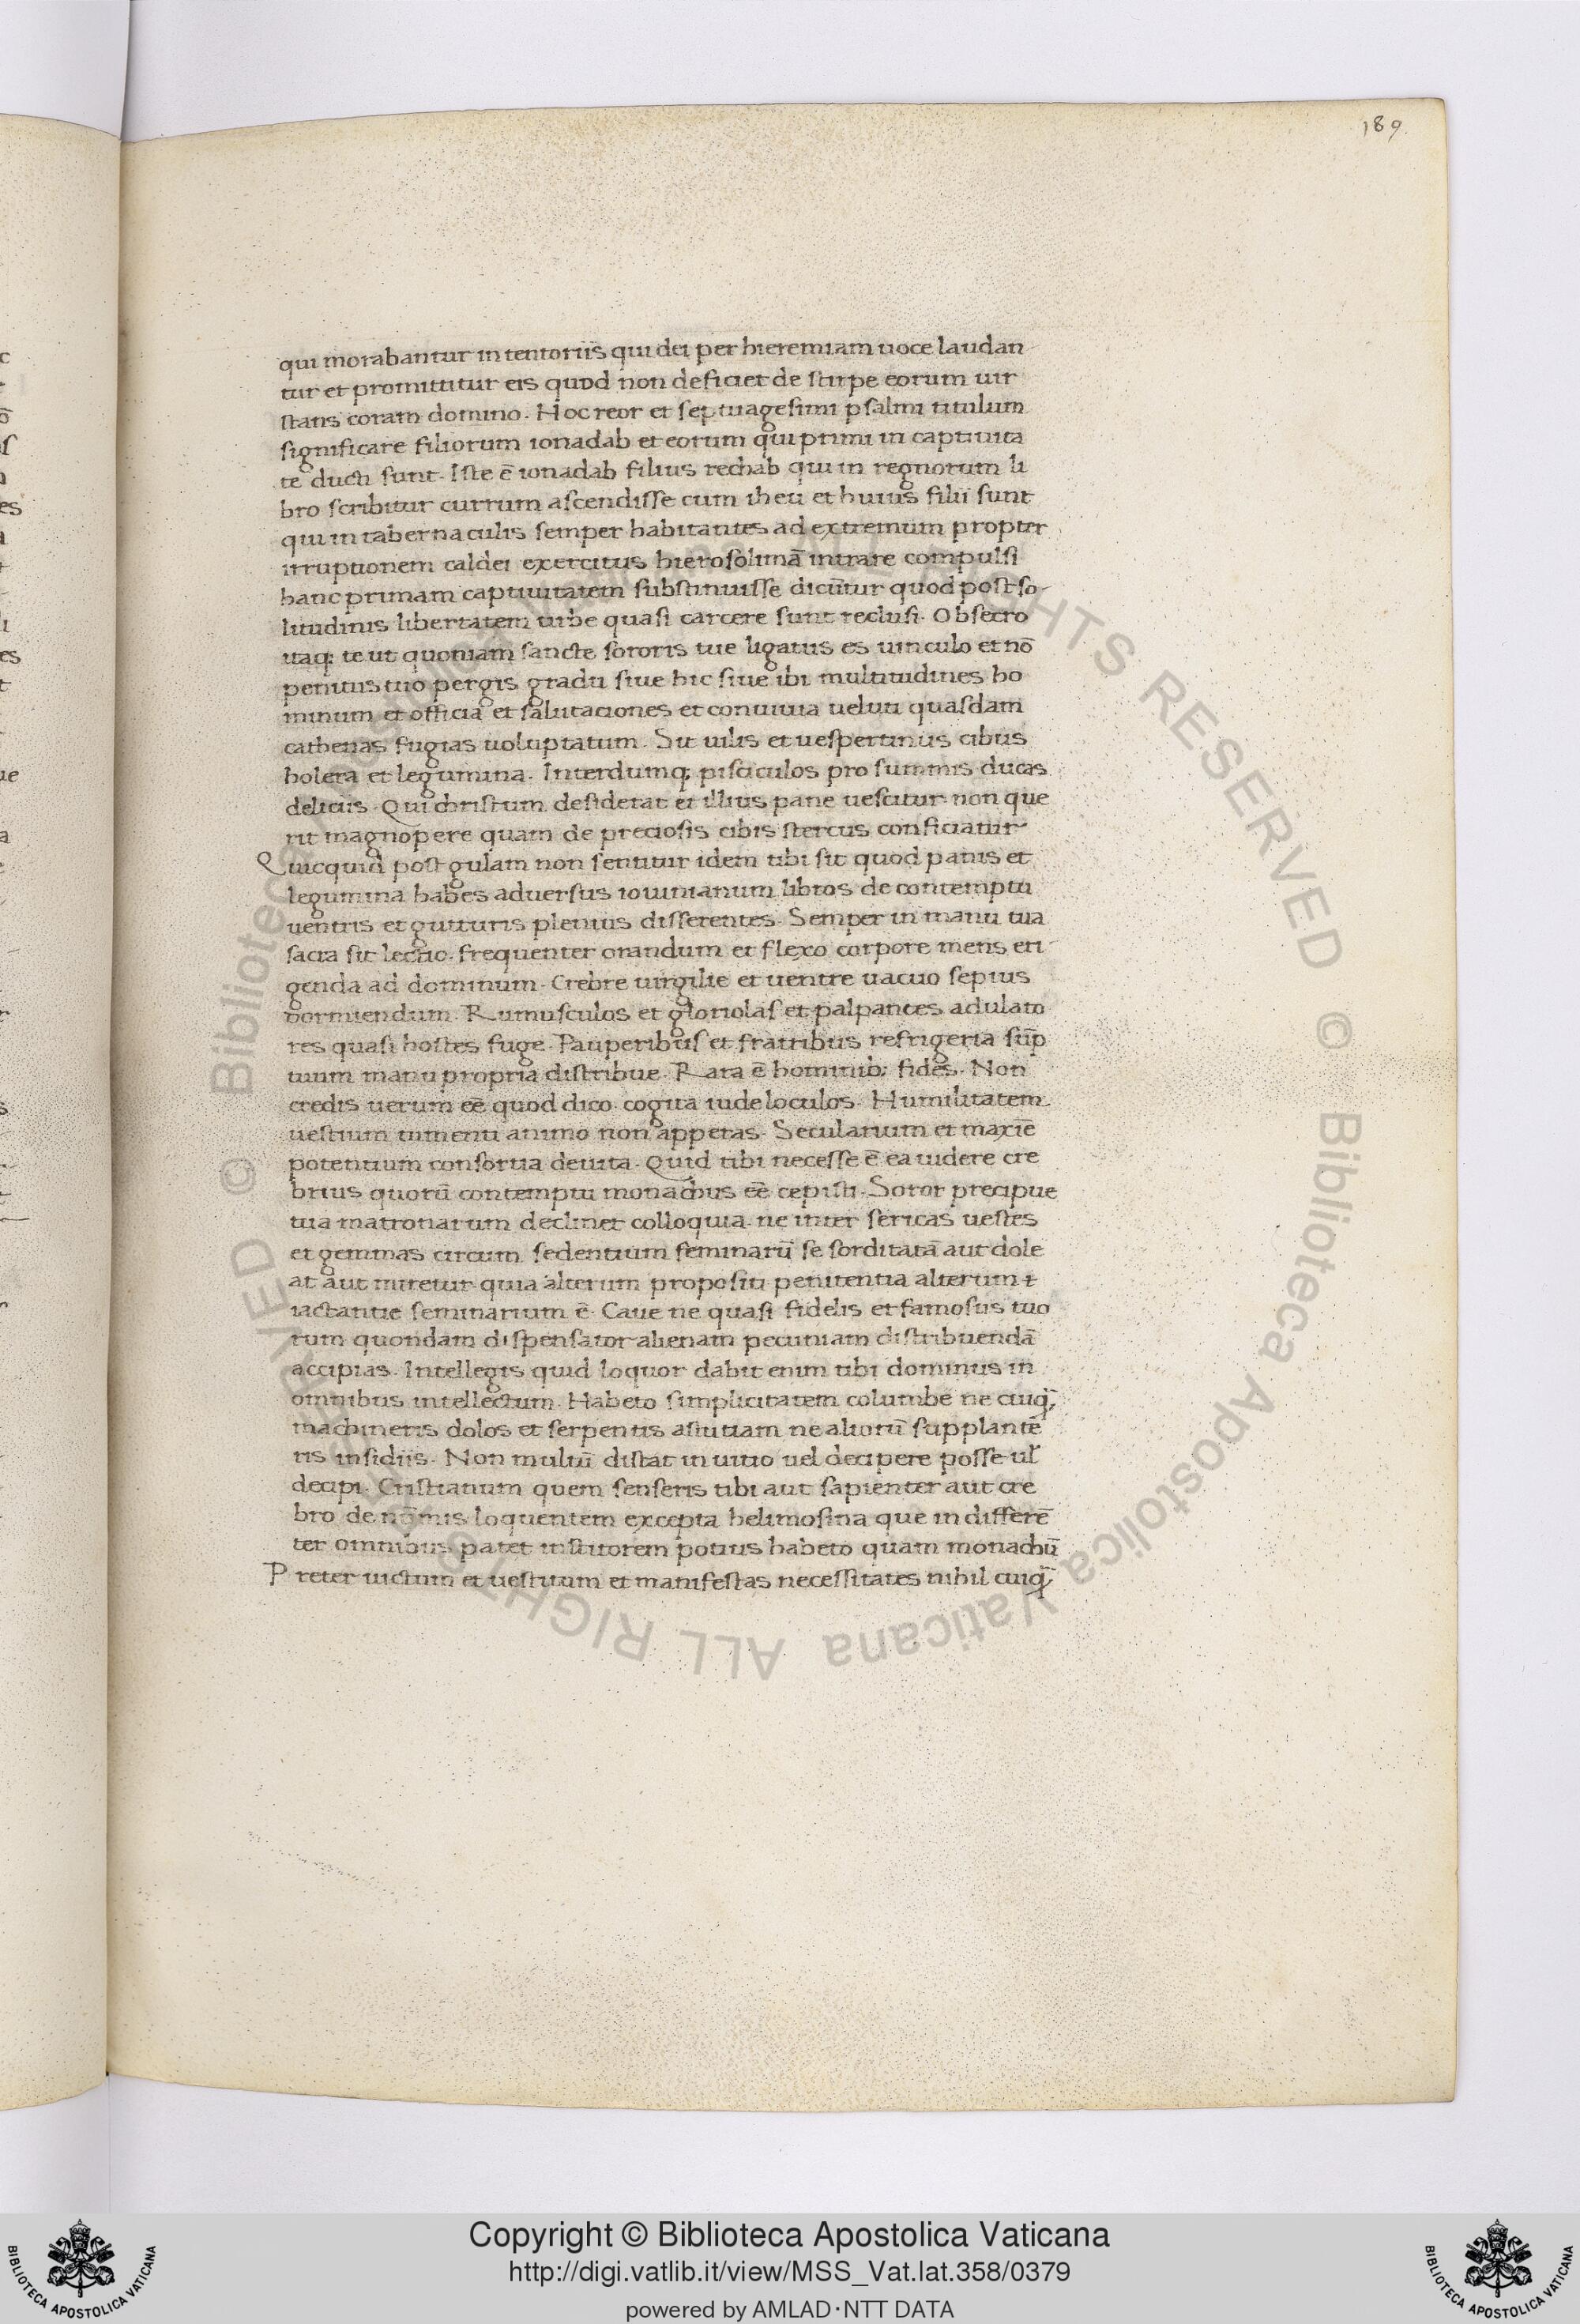 189.
qui morabantur in tentoriis qui dei per hieremiam uoce laudan
tur et promittitur eis quod non deficiet de stirpe eorum uir
stans coram domino. Hoc reor et septuagesimi psalmi titulum
significare filiorum ionadab et eorum qui primi in captiuita
te ducti sunt. Iste ē ionadab filius rechab qui in regnorum li
bro scribitur currum ascendisse cum iheu et huius filii sunt
qui in tabernaculis semper habitantes ad extremum propter
irruptionem caldei exercitus hierosolimā intrare compulsi
hanc primam captiuitatem substinuisse dicūtur quod post so-
litudinis libertatem urbe quasi carcere sunt reclusi. Obsecro
itaq; te ut quoniam sancte sororis tue ligatus es uinculo et nō
penitus tuo pergis gradu siue hic siue ibi multitudines ho
minum et officia et salutaciones et conuiuia ueluti quasdam
cathenas fugias uoluptatum. Sit uilis et uespertinus cibus
holera et legumina. Interdumq; pisciculos pro summis ducas
deliciis. Qui christum desiderat et illius pane uescitur non que
rit magnopere quam de preciosis cibis stercus conficiatur
Quicquid post gulam non sentitur idem tibi sit quod panis et
legumina habes aduersus iouinianum libros de contemptu
uentris et gutturis plenius disserentes. Semper in manu tua
sacra sit lectio. frequenter orandum et flexo corpore mens eri
genda ad dominum. Crebre uirgilie et uentre uacuo sepius
dormiendum. Rumusculos et gloriolas et palpantes adulato
res quasi hostes fuge. Pauperibus et fratribus refrigeria sūp
tuum manu propria distribue. Rara ē hominib; fides. Non
credis uerum eē quod dico. cogita iude loculos. Humilitatem
uestium tumenti animo non appetas. Secularium et maxīe
potentium consortia deuita. Quid tibi necesse ē ea uidere cre
brius quorū contemptu monachus eē cepisti. Soror precipue
tua matronarum declinet colloquia. ne inter sericas uestes
et gemmas circum sedentium feminarū se sorditatā aut dole
at aut miretur quia alterum propositi penitentia alterum
iactantie seminarium ē. Caue ne quasi fidelis et famosus tuo
rum quondam dispensator alienam pecuniam distribuendā
accipias. Intellegis quid loquor dabit enim tibi dominus in
omnibus intellectum. Habeto simplicitatem columbe ne cuiq̄;
machineris dolos et serpentis astutiam ne aliorū supplantē
ris insidiis. Non multū distat in uitio uel decipere posse ul̄
decipi. Cristianum quem senseris tibi aut sapienter aut cre
bro de nūmis loquentem excepta helimosina que indifferē
ter omnibus patet institorem potius habeto quam monachū
Preter uictum et uestitum et manifestas necessitates nihil cuiq̄
© Biblioteca Apostolica Vaticana ALL RIGHTS RESERVED
Copyright © Biblioteca Apostolica Vaticana
http://digi.vatlib.it/view/MSS_Vat.lat.358/0379
powered by AMLAD·NTT DATA
BIBLIOTECA APOSTOLICA VATICANA
BIBLIOTECA APOSTOLICA VATICANA